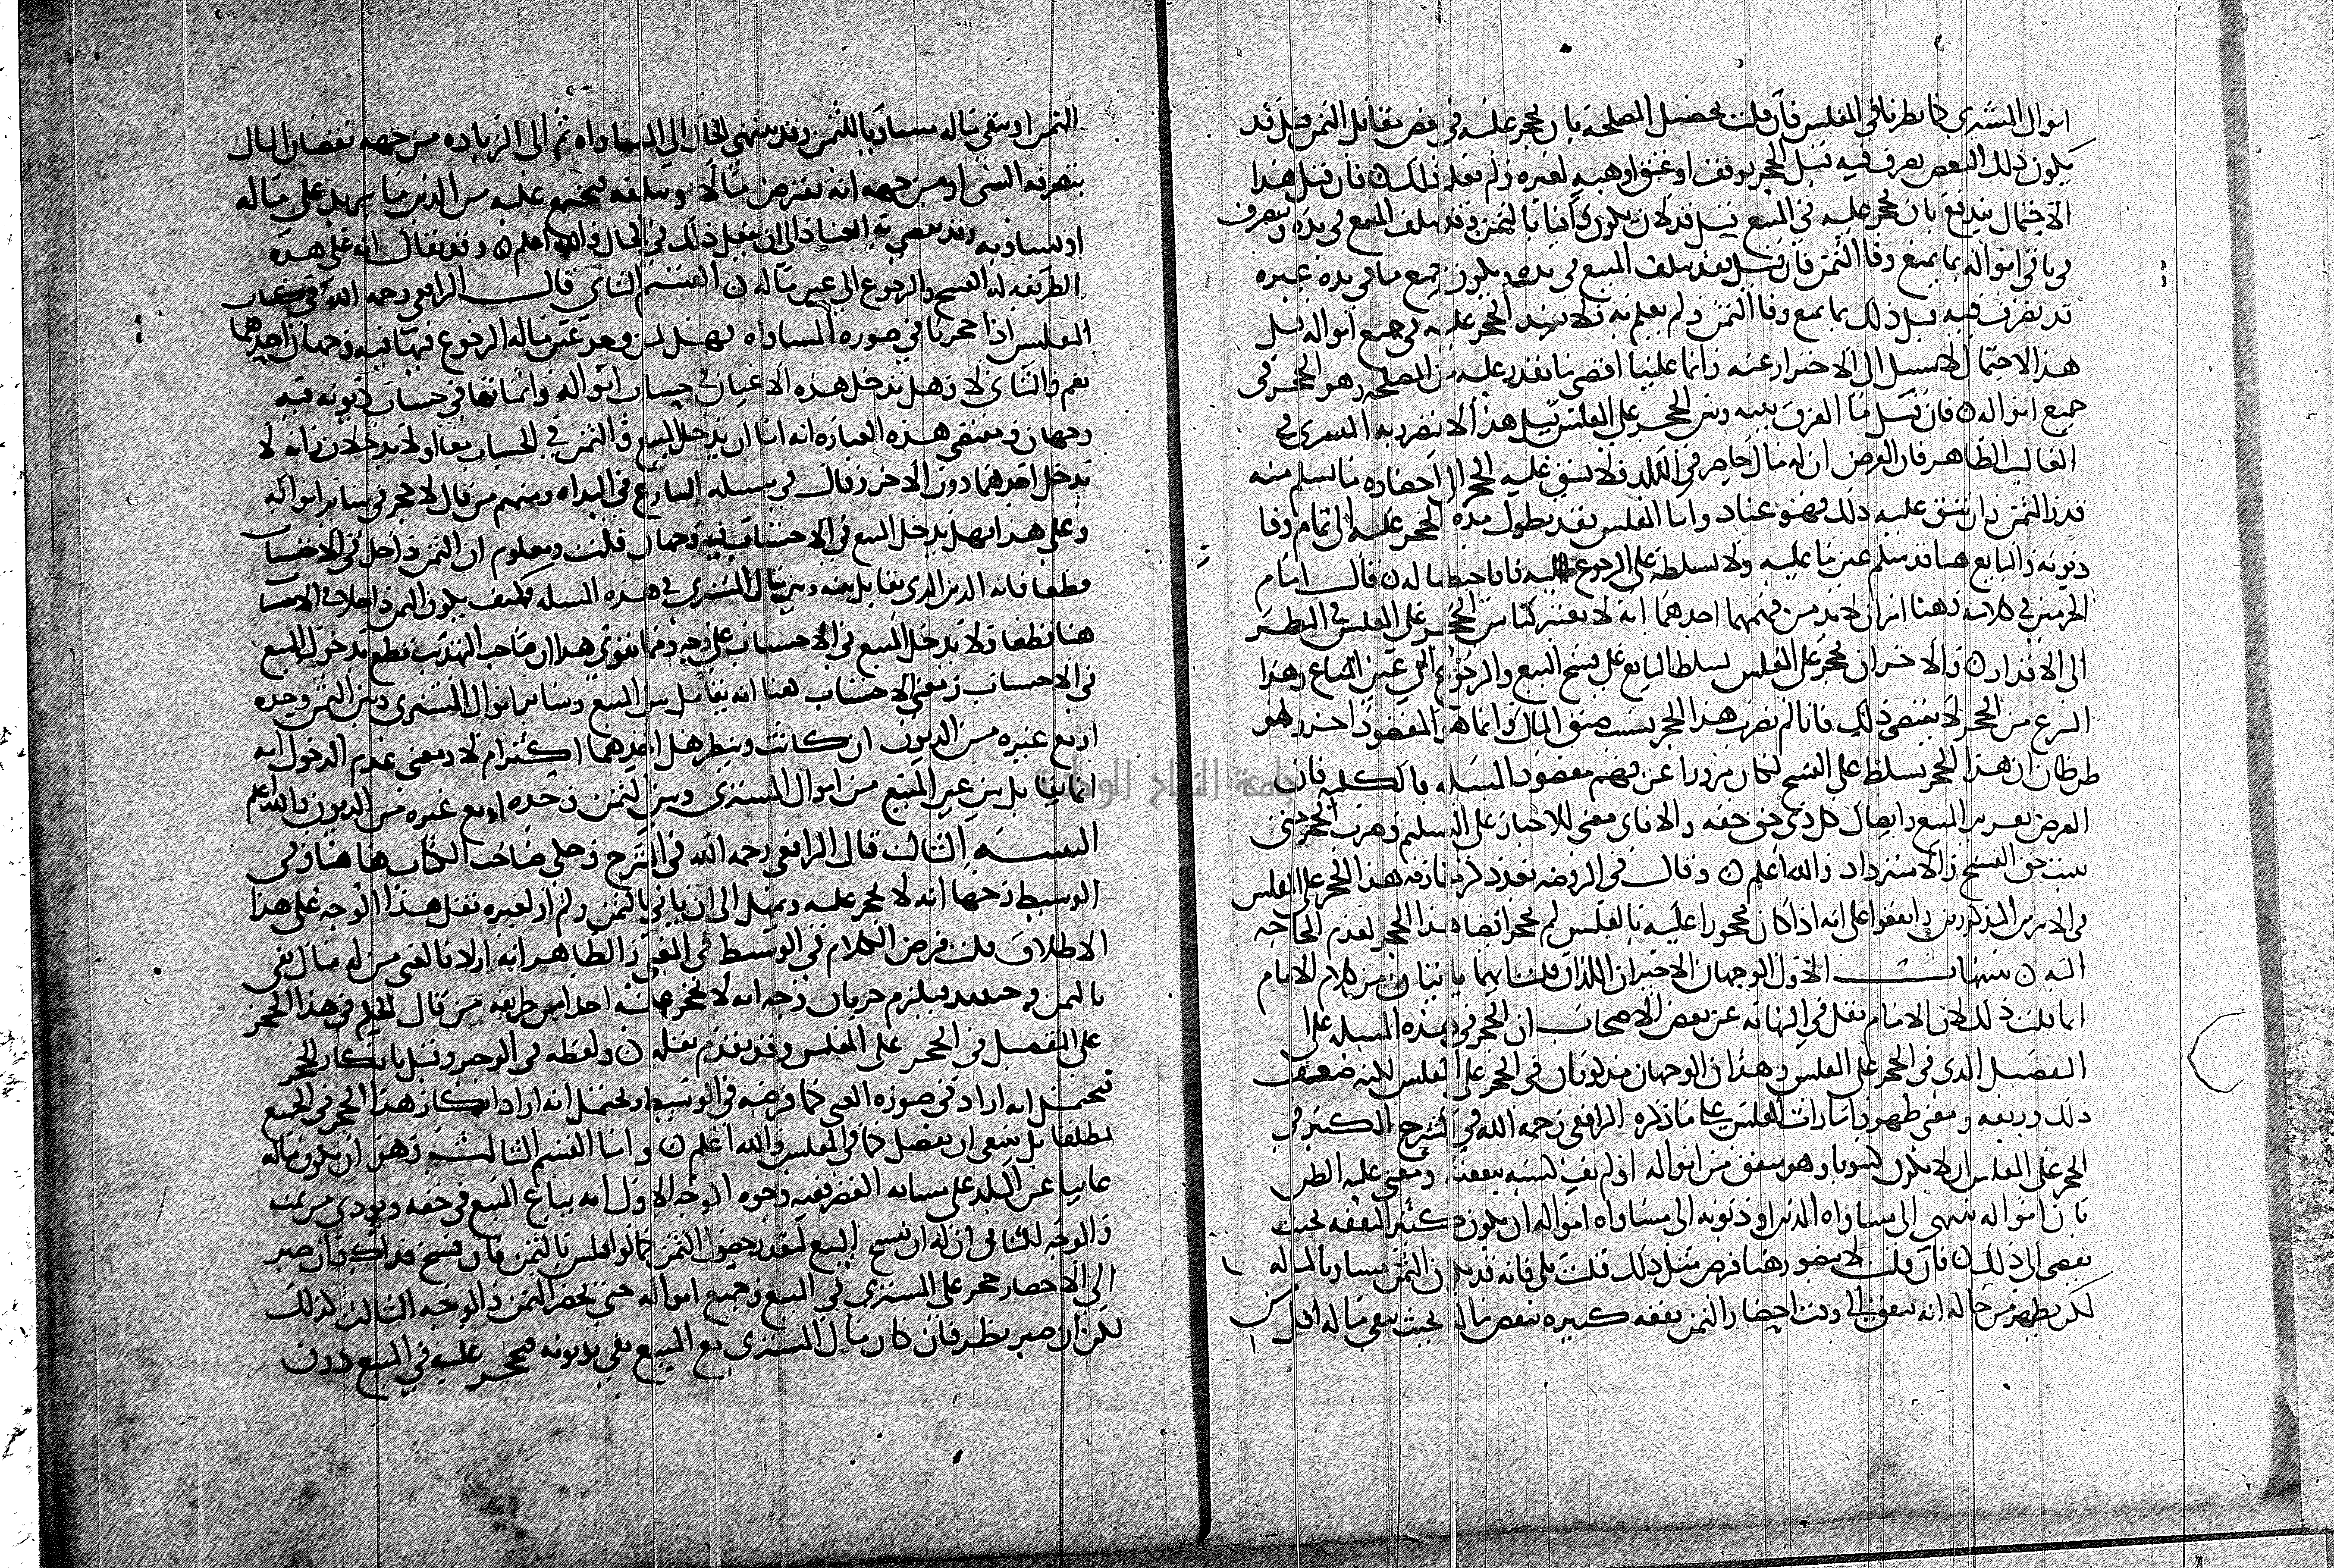 اموال المشتري كما نظرنا في المفلس فان قلت تحصيل المصلحة بان يحجر عليه في قدر يقابل الثمن قيل قد
يكون ذلك البعض تصرف فيه قبل الحجر بوقف او عتق او هبه لغيره ولم نعلم ذلك فان قيل هذا
الاحتمال يندفع بان يحجر عليه في المبيع قيل قد لا يكون وافيا بالثمن وقد يتلف المبيع في يده ويتصرف
في باقي امواله بما يمنع وفا الثمن فان قيل فقد يتلف المبيع في يده ويكون جميع ما في يده غيره
قد تصرف فيه قبل ذلك بما يمنع وفا الثمن ولم نعلم به فلا يفيد الحجر عليه في جميع امواله قيل
هذا الاحتمال لا سبيل الى الاحتراز عنه وانما علينا اقصى ما نقدر عليه من المصلحه وهو الحجر في
جميع امواله فان قيل ما الفرق بينه وبين الحجر على المفلس قيل هذا لا يتضرر به المشتري في
الغالب الظاهر فان الفرض ان له مال حاضر في البلد فلا يشق عليه الحجر الى احضاره ما يسلم منه
قدر الثمن وان شق عليه ذلك فهو عناد واما المفلس فقد يطول مدة الحجر عليه الى تمام وفا
ديونه والبايع هنا قد سلم عين ماله ولا نسلطه على الرجوع اليه فاحتطنا له قال امام
الحرمين في كلامه وهنا امران لا بد من فهمهما احدهما انه لا يعتبر كما في الحجر على المفلس في النظر
الى الاقدار والاخر ان حجر على المفلس يسلط البايع على فسخ البيع والرجوع الى عين المتاع وهذا
النوع من الحجر لا يقتضي ذلك فانا لم نضرب هذا الحجر بسبب ضيق المال وانما هو المقصود اخر ولو
ظن ظان ان هذا الحجر يسلط على الفسخ لكان مزورا عن فهم مقصود المسله بالكليه فان
الغرض تقرير البيع وايصال كل ذي حق حقه والا فاي معنى للاجبار على التسليم وضرب الحجر حتى
يثبت حق الفسخ والاسترداد والله اعلم وقال في الروضه بعد ذكر ما فارقه هذا الحجر على المفلس
في الامرين المذكورين واتفقوا على انه اذا كان محجورا عليه بالفلس لم يحجر ايضا هذا الحجر لعدم الحاجه
اليه تنبيهات الاول الوجهان الاخيران اللذان قلت انهما ياتيان من كلام الامام
انما قلت ذلك لان الامام نقل في النهايه عن بعض الاصحاب ان الحجر في هذه المسله على
التفصيل الذي في الحجر على المفلس وهذان الوجهان مذكوران في الحجر على المفلس لكنه ضعف
ذلك وزيفه ومعنى ظهور امارات الفلس على ما ذكره الرافعي رحمه الله في الشرح الكبير في
الحجر على المفلس ان لا يكون كسوبا وهو ينفق من امواله او لم يف كسبه بنفقته ومعنى غلبه الظن
بان امواله تنتهي الى مساواه الدين او ديونه الى مساواه امواله ان يكون كثير النفقه بحيث
يفضي الى ذلك فان قلت لا يتصور هنا فرض مثل ذلك قلت بلى فانه قد يكون الثمن مساويا لماله
لكن يظهر من حاله انه ينفق الى وقت احضار الثمن نفقه كبيره تنقص ماله بحيث يبقى ماله اقل من
الثمن او يبقى ماله مساويا للثمن وقد ينتهي الحال الى المساواه ثم الى الزياده من جهه نقصان المال
بتصرفه السي او من جهه انه يقترض مالا ويتلفه فيجتمع عليه من الدين ما يزيد على ماله
او يساويه وقد يفضي به العناد الى ان يفعل ذلك في الحال والله اعلم وقد يقال انه على هذه
الطريقه له الفسخ والرجوع الى عين ماله القسم الثاني قال الرافعي رحمه الله في كتاب
المفلس اذا حجرنا في صوره المساواه فهل لمن وجد عين ماله الرجوع فيها فيه وجهان احدهما
نعم والثاني لا وهل تدخل هذه الاعيان في حساب امواله واثمانها في حساب ديونه فيه
وجهان ومقتضى هذه العباره انه اما ان يدخل المبيع والثمن في الحساب معا او لا يدخلان وانه لا
يدخل احدهما دون الاخر وقال في مسله التنازع في البداه ومنهم من قال لا حجر في ساير امواله
وعلى هذا فهل يدخل المبيع في الاحتساب فيه وجهان قلت ومعلوم ان الثمن داخل في الاحتساب
قطعا فانه الدين الذي نقابل بينه وبين مال المشتري في هذه المسله فكيف يكون الثمن داخلا في الاحتساب
هنا قطعا ولا يدخل المبيع في الاحتساب على وجه ومما يقوي هذا ان صاحب التهذيب قطع بدخول المبيع
في الاحتساب ومعنى الاحتساب هنا انه يقابل بين المبيع وساير اموال المشتري وبين الثمن وحده
او مع غيره من الديون ان كانت وينظر هل احدهما اكثر ام لا ومعنى عدم الدخول انه
انما يقابل بين غير المبيع من اموال المشتري وبين الثمن وحده او مع غيره من الديون والله اعلم
التنبيه الثالث قال الرافعي رحمه الله في الشرح وحكى صاحب الكتاب ها هنا وفي
الوسيط وجها انه لا يحجر عليه ويمهل الى ان ياتي بالثمن ولم ار لغيره نقل هذا الوجه على هذا
الاطلاق قلت فرض الكلام في الوسيط في الغني والظاهر انه اراد بالغني من له مال يفي
بالثمن وحينئذ فيلزم جريان وجه انه لا يحجر عليه احدا من طريقه من قال الحكم في هذا الحجر
على التفصيل في الحجر على المفلس وقد تقدم نقله ولفظه في الوجيز وقيل بانكار الحجر
فيحتمل انه اراد في صورة الغني كما فرضه في الوسيط ويحتمل انه اراد انكار هذا الحجر في الجميع
مطلقا بل ينبغي ان يفصل كما في المفلس والله اعلم واما القسم الثالث وهو ان يكون ماله
غايبا عن البلد على مسافه القصر ففيه وجوه الوجه الاول انه يباع المبيع في حقه ويودي من ثمنه
والوجه الثاني ان له ان يفسخ البيع لتعذر حصول الثمن كما لو افلس بالثمن فان فسخ فذاك وان صبر
الى الاحضار حجر على المشتري في المبيع وجميع امواله حتى يحضر الثمن والوجه الثالث كذلك
لكن ان صبر نظر فان كان مال المشتري مع المبيع يفي بديونه فيحجر عليه في المبيع دون
جامعة النجاح الوطنية